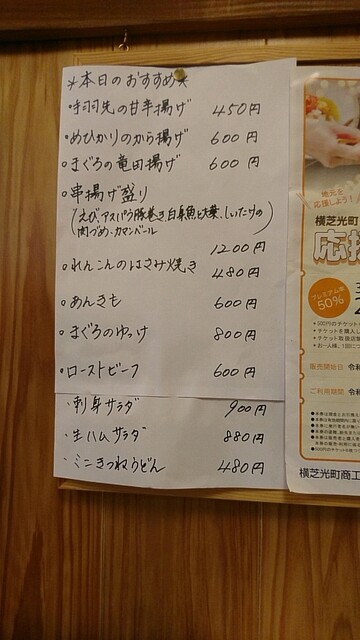 *本日のおすすめ*
・手羽先の甘辛揚げ 450円
・めひかりのから揚げ 600円
・まぐろの竜田揚げ 600円
・串揚げ盛り
(えび、アスパラ豚巻き、白身魚と大葉、しいたけの
肉づめ、カマンベール
1200円
・れんこんのはさみ焼き 480円
・あんきも 600円
・まぐろのゆっけ 800円
・ローストビーフ 600円
・刺身サラダ 900円
・生ハムサラダ 880円
・ミニきつねうどん 480円
地元を
応援しよう!
横芝光町
応援
プレミアム率
50%
・500円のチケット
・チケットを購入し
・チケット取扱店舗
・お一人様、1回につ
販売開始日 令和
ご利用期間 令和
横芝光町商工